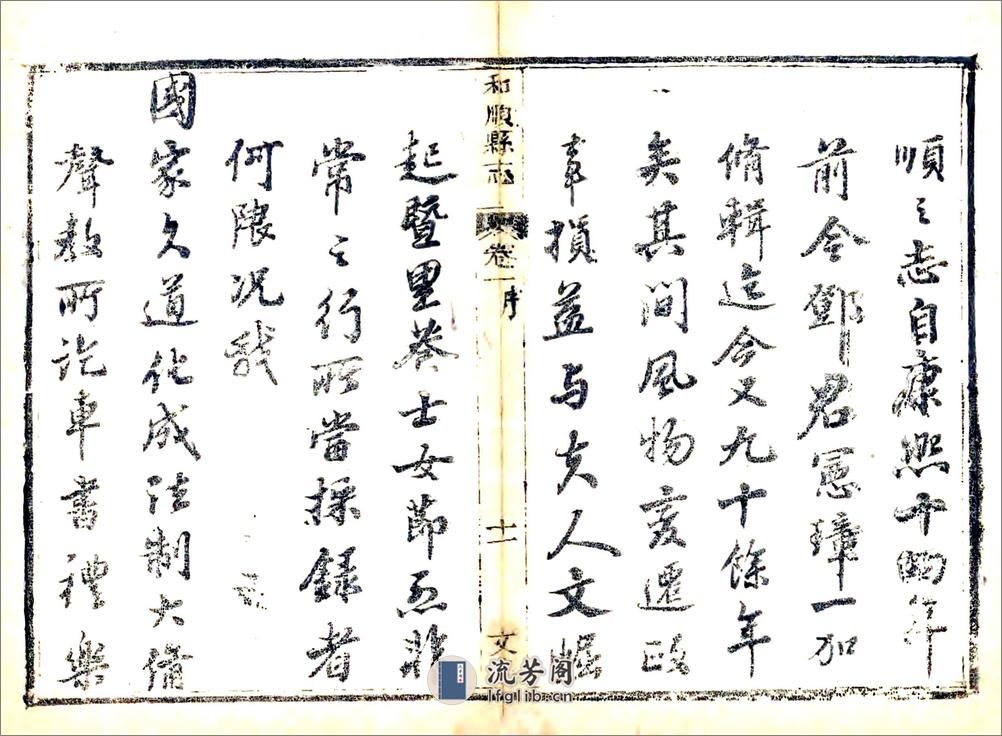 順之志自康熙十四年
前令鄧君憲璋一加
脩輯迄今又九十餘年
矣其間風物變遷政
事損益与夫人文崛
和順縣志
卷一序
十一
文
起暨里巷士女節烈非
常之行所當採錄者
何限况我
國家久道化成法制大備
聲教所訖車書禮樂
流芳阁
lfglib.cn